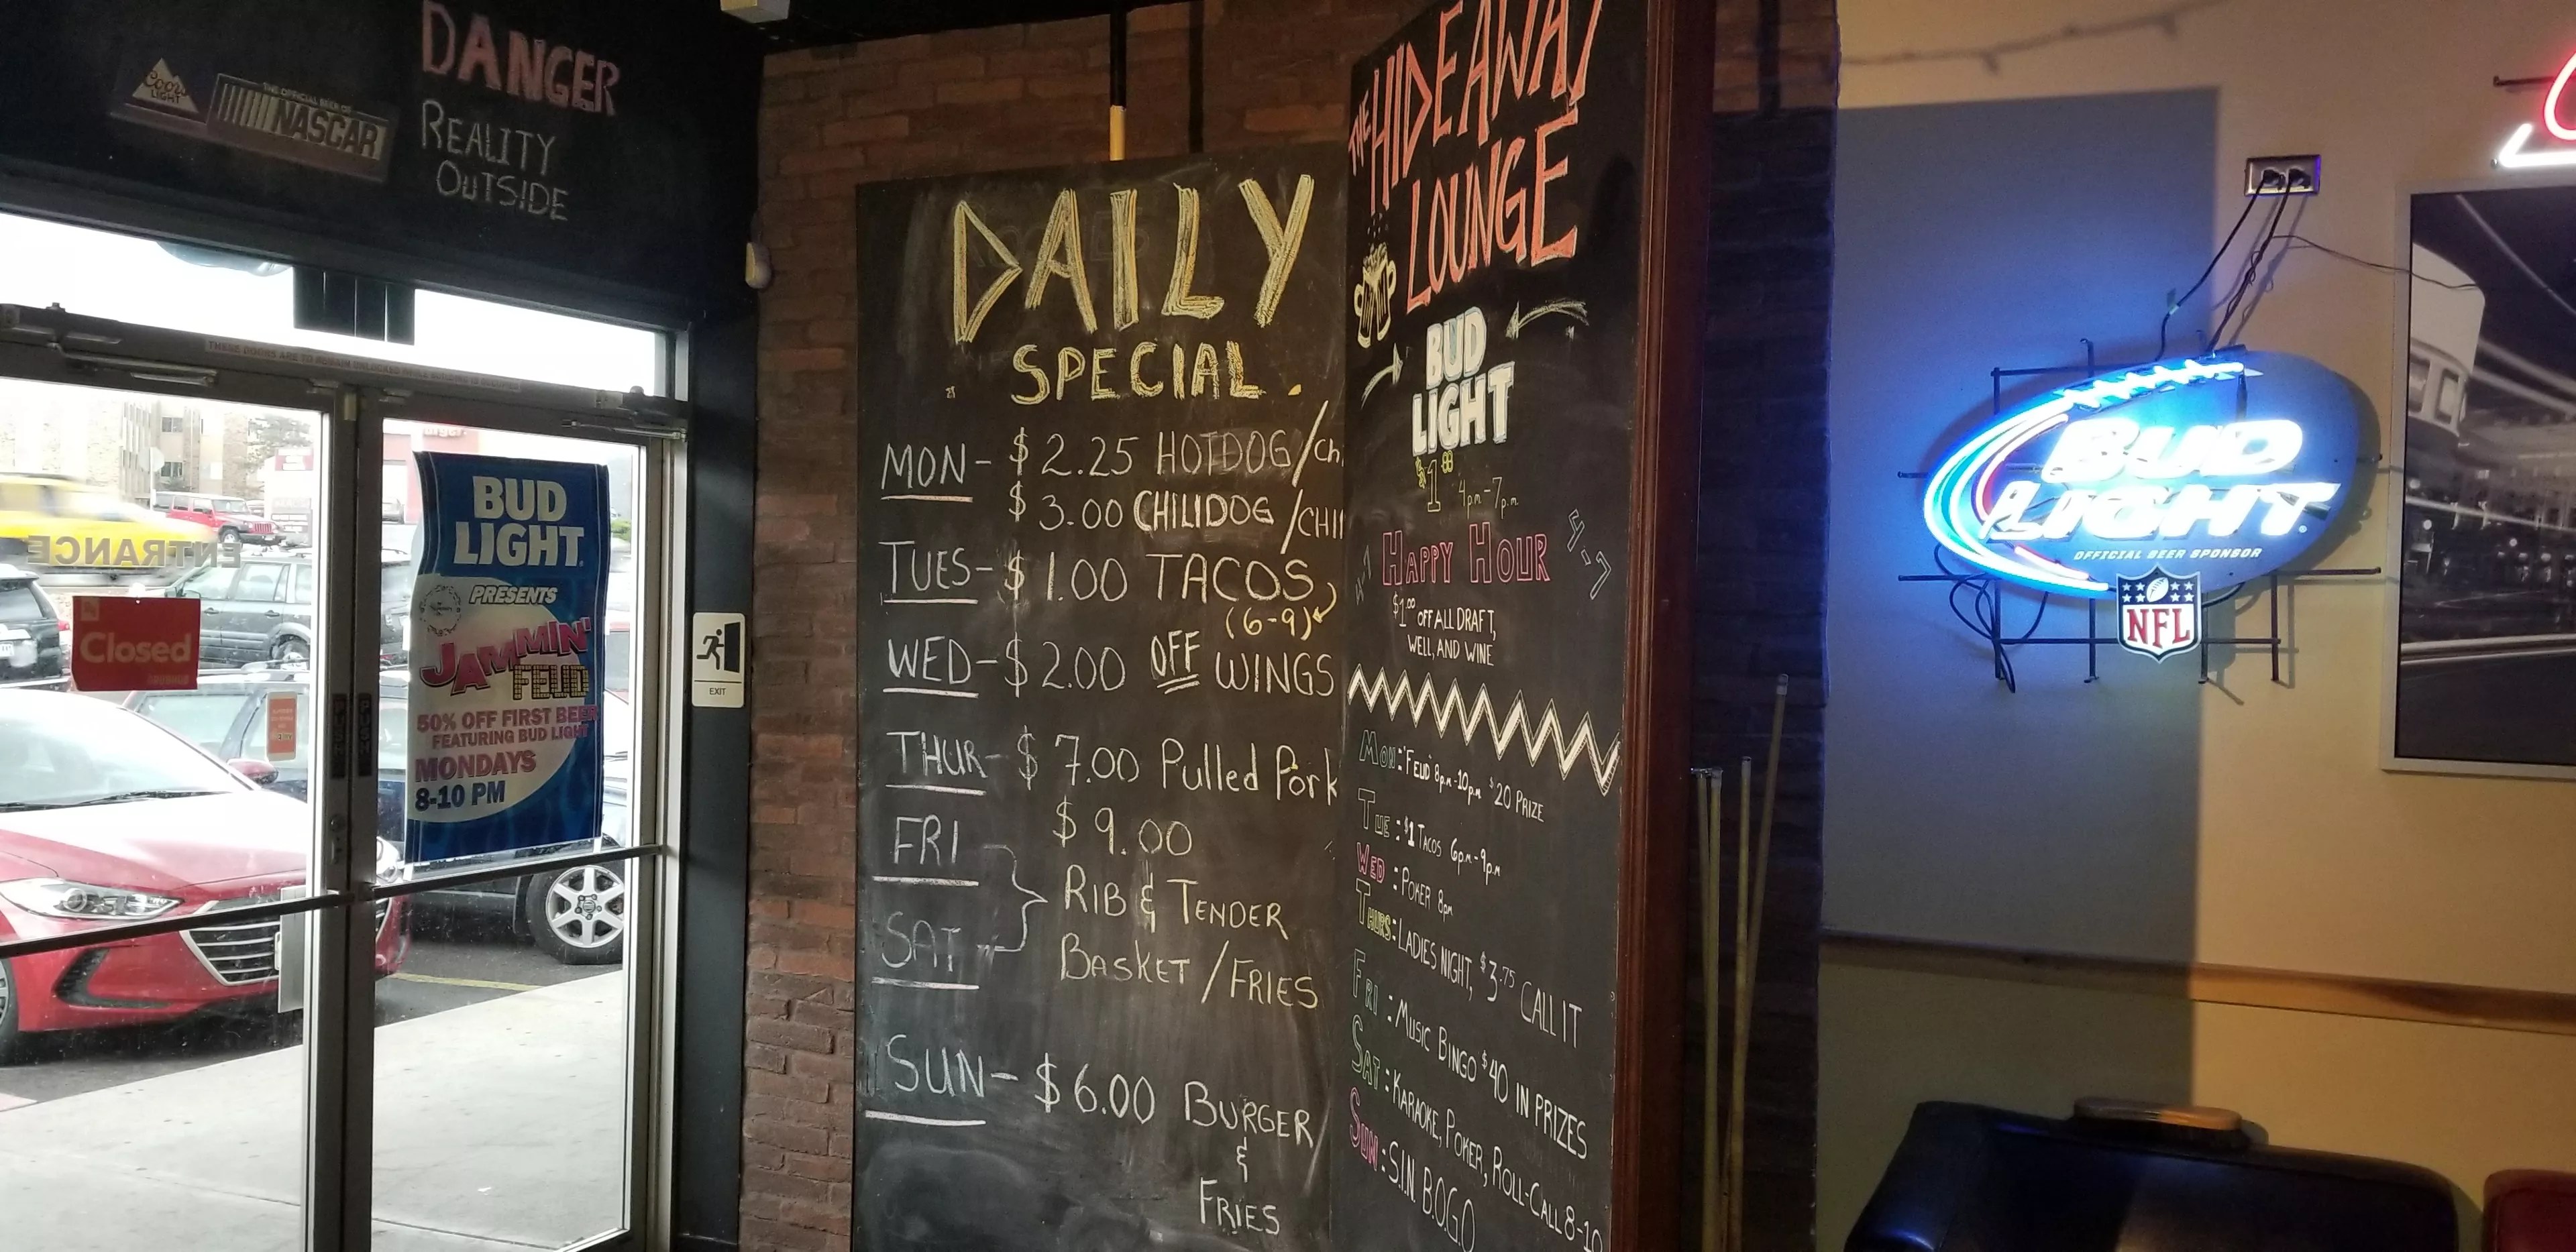 DANGER
REALITY
OUTSIDE
Coors
LIGHT
THE OFFICIAL BEER OF
NASCAR
THESE DOORS ARE TO REMAIN UNLOCKED WHILE BUILDING IS OCCUPIED
ENTRANCE
Closed
PUSH
PUSH
BUD
LIGHT
PRESENTS
JAMMIN'
FEUD
50% OFF FIRST BEER
FEATURING BUD LIGHT
MONDAYS
8-10 PM
EXIT
DAILY
SPECIAL
MON- $2.25 HOTDOG/Ch
$3.00 CHILIDOG/CHI
TUES- $1.00 TACOS
(6-9)
WED- $2.00 OFF WINGS
THUR- $7.00 Pulled Pork
FRI
SAT
$9.00
RIB & TENDER
BASKET/FRIES
SUN- $6.00 BURGER
&
FRIES
THE HIDEAWAY
LOUNGE
BUD
LIGHT
$1.00 4pm-7pm
HAPPY HOUR
4-7
$1.00 OFF ALL DRAFT,
WELL, AND WINE
MON: "FEUD" 8pm-10pm $20 PRIZE
TUE: $1 TACOS 6pm-9pm
WED: POKER 8pm
THURS: LADIES NIGHT, $3.75 CALL IT
FRI: MUSIC BINGO $40 IN PRIZES
SAT: KARAOKE, POKER, ROLL-CALL 8-10
SUN: S.I.N. B.O.G.O
BUD
LIGHT
OFFICIAL BEER SPONSOR
NFL